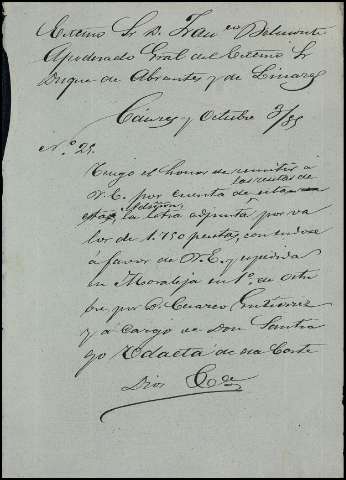 Excmo Sr D. Fran.co Belmonte
Apoderado Gral del Excmo Sr
Duque de Abrantes y de Linares
Cáceres y Octubre 3/85
N.º 25.
Tengo el honor de remitir á
las rentas de
V. E. por cuenta de
la letra adjunta por va
lor de 1.750 pesetas, con endose
á favor de V. E. y expedida
en Moraleja en 1º. de Octu
bre por D. Gutierrez
y á cargo de Don Santia
go Udaeta de esa Corte
Dios